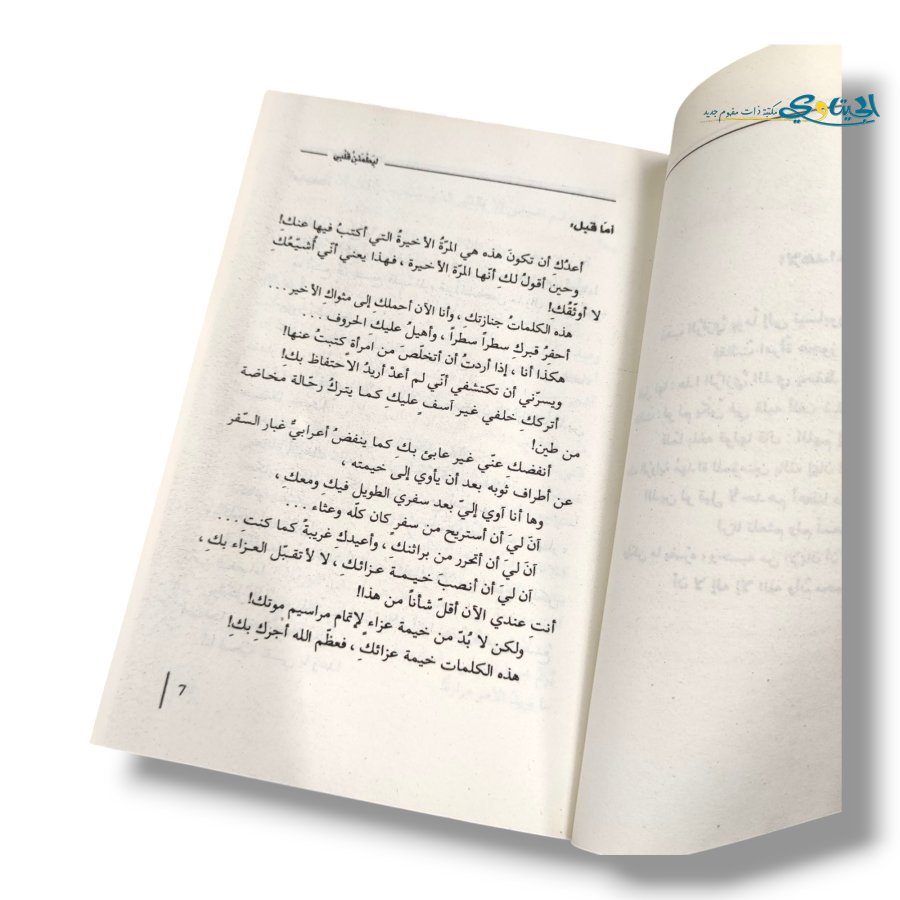 الحيتاوي
مكتبة ذات مفهوم جديد
ليطمئنّ قلبي
أما قبل:
أعدُكِ أن تكونَ هذه هي المرّةُ الأخيرةُ التي أكتبُ فيها عنكِ!
وحينَ أقولُ لكِ أنّها المرّة الأخيرة ، فهذا يعني أنّي أُشيّعُكِ
لا أوثّقُك!
هذه الكلماتُ جنازتك ، وأنا الآن أحملكِ إلى مثواكِ الأخير ...
أحفرُ قبركِ سطراً سطراً ، وأهيلُ عليكِ الحروف ...
هكذا أنا ، إذا أردتُ أن أتخلّصَ من امرأة كتبتُ عنها!
ويسرّني أن تكتشفي أنّي لم أعدْ أريدُ الاحتفاظ بكِ!
أتركك خلفي غير آسف عليكِ كما يتركُ رحّالة مخاضة
من طين!
أنفضكِ عنّي غير عابئ بكِ كما ينفضُ أعرابيٌّ غبار السّفر
عن أطراف ثوبه بعد أن يأوي إلى خيمته ،
وها أنا آوي إليّ بعد سفري الطويل فيكِ ومعكِ ،
آنَ ليَ أن أستريح من سفرٍ كان كلّه وعثاء ...
آنَ ليَ أن أتحرر من براثنكِ ، وأعيدكِ غريبةً كما كنتِ ...
آن ليَ أن أنصبَ خيمة عزائكِ ، لا لأتقبّل العزاء بكِ ،
أنتِ عندي الآن أقلّ شأناً من هذا!
ولكن لا بُدّ من خيمة عزاء لإتمام مراسيم موتك!
هذه الكلمات خيمة عزائكِ ، فعظّم الله أجركِ بكِ!
7